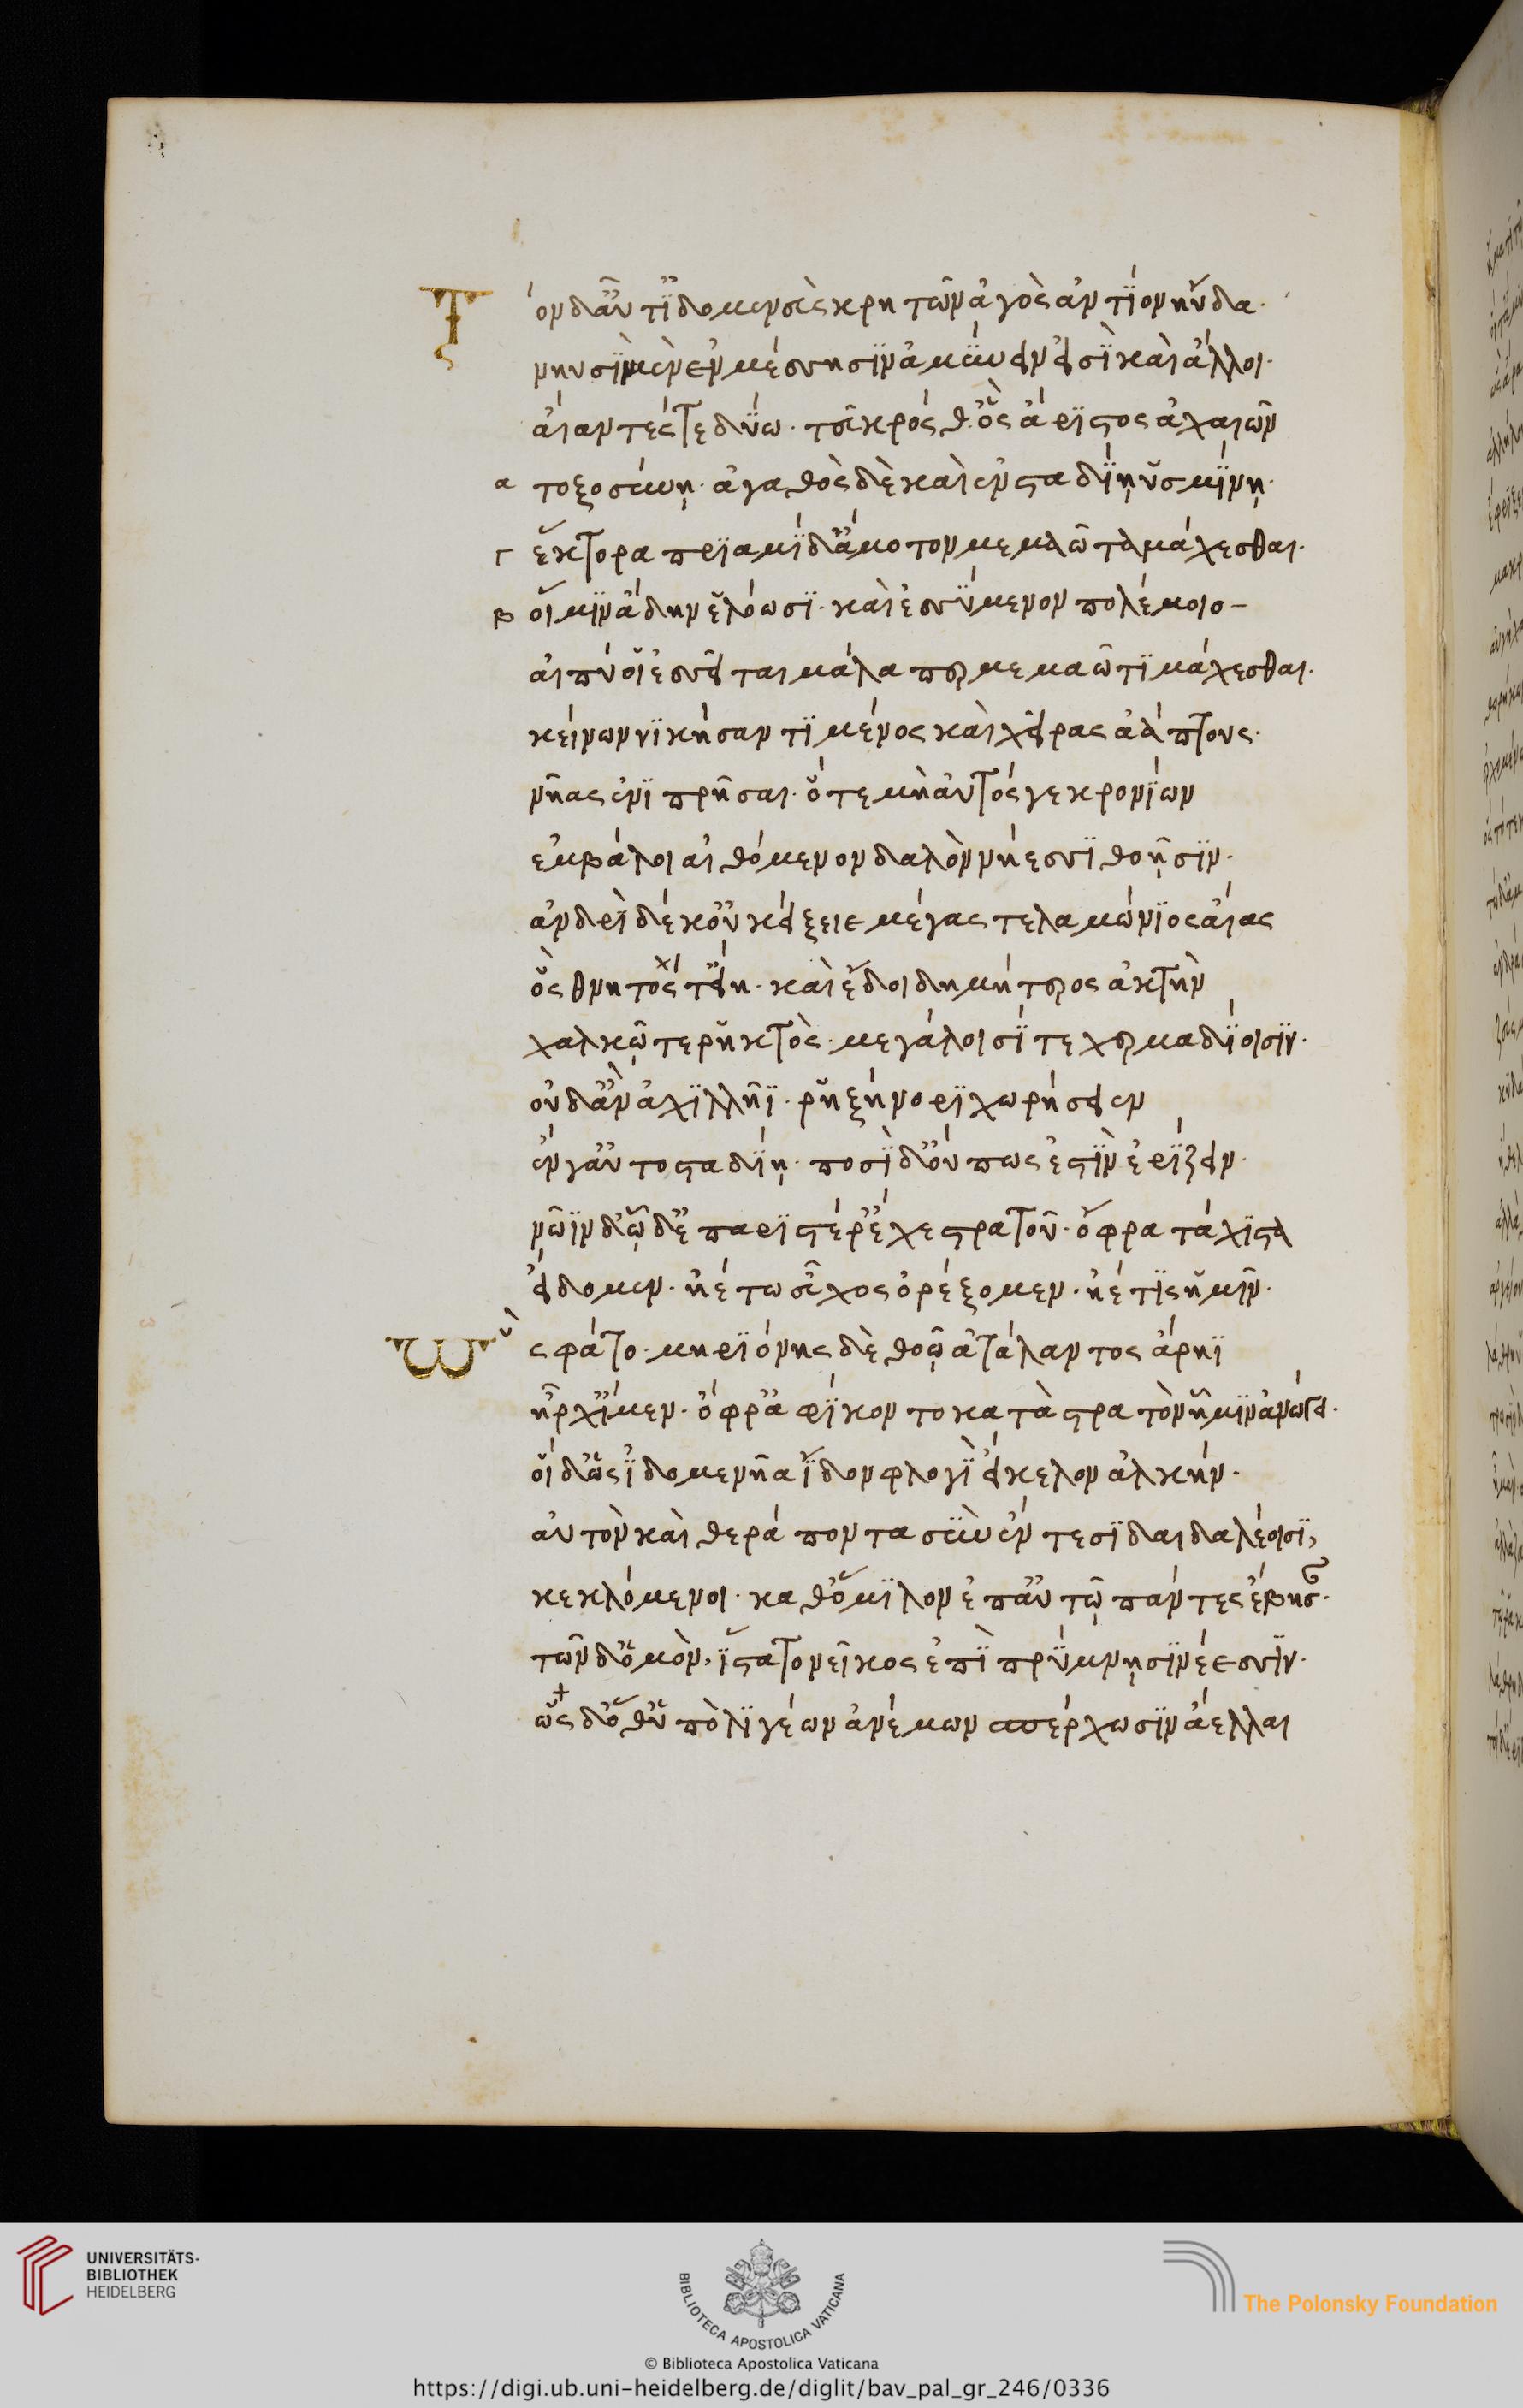 Τὸν δ' αὖτ' ἰδομενεὺς κρητῶν ἀγὸς ἀντίον ηὔδα·
νηυσὶ μὲν ἐν μέσσησιν ἀμύνειν εἰσὶ καὶ ἄλλοι·
αἴαντές τε δύω· τεῦκρός θ' ὃς ἄριστος ἀχαιῶν
α τοξοσύνῃ· ἀγαθὸς δὲ καὶ ἐν σταδίῃ ὑσμίνῃ·
Γ ἕκτορα πριαμίδ' ἄμοτον μεμαῶτα μάχεσθαι·
Β οἵ μιν ἄδην ἑλόωσι· καὶ ἐσσύμενον πολέμοιο–
αἰπύ οἱ ἐσσεῖται μάλα περ μεμαῶτι μάχεσθαι·
κείνων νικήσαντι μένος καὶ χεῖρας ἀάπτους·
νῆας ἐνιπρῆσαι· ὅτε μὴ αὐτός γε κρονίων
ἐμβάλοι αἰθόμενον δαλὸν νήεσσι θοῇσιν·
ἀνδρὶ δέ κ' οὐκ εἴξειε μέγας τελαμώνιος αἴας
ὃς θνητός τ' εἴη· καὶ ἔδοι δημήτερος ἀκτὴν
χαλκῷ τε ῥηκτὸς· μεγάλοισί τε χερμαδίοισιν·
οὐδ' ἂν ἀχιλλῆϊ· ῥηξήνορι χωρήσειεν
ἐν γ' αὐτοσταδίῃ· ποσὶ δ' οὔ πως ἐστὶν ἐρίζειν·
νῶϊν δ' ὧδ' ἐπ' ἀριστέρ' ἔχε στρατοῦ· ὄφρα τάχιστα
εἴδομεν· ἠέ τω εὖχος ὀρέξομεν· ἠέ τις ἡμῖν·
Ὣς φάτο· μηριόνης δὲ θοῷ ἀτάλαντος ἄρηϊ
ἦρχ' ἴμεν· ὄφρ' ἀφίκοντο κατὰ στρατὸν ἧ μιν ἀνώγει·
οἱ δ' ὡς ἰδομενῆα ἴδον φλογὶ εἴκελον ἀλκήν·
αὐτὸν καὶ θεράποντα σὺν ἔντεσι δαιδαλέοισι,
κεκλόμενοι· καθ' ὅμιλον ἐπ' αὐτῷ πάντες ἔβησαν·
τῶν δ' ὁμὸν, ἵστατο νεῖκος ἐπὶ πρύμνῃσι νέεσσιν·
ὡς δ' ὅθ' ὑπὸ λιγέων ἀνέμων σπέρχωσιν ἄελλαι
UNIVERSITÄTS-
BIBLIOTHEK
HEIDELBERG
BIBLIOTECA APOSTOLICA VATICANA
The Polonsky Foundation
© Biblioteca Apostolica Vaticana
https://digi.ub.uni-heidelberg.de/diglit/bav_pal_gr_246/0336